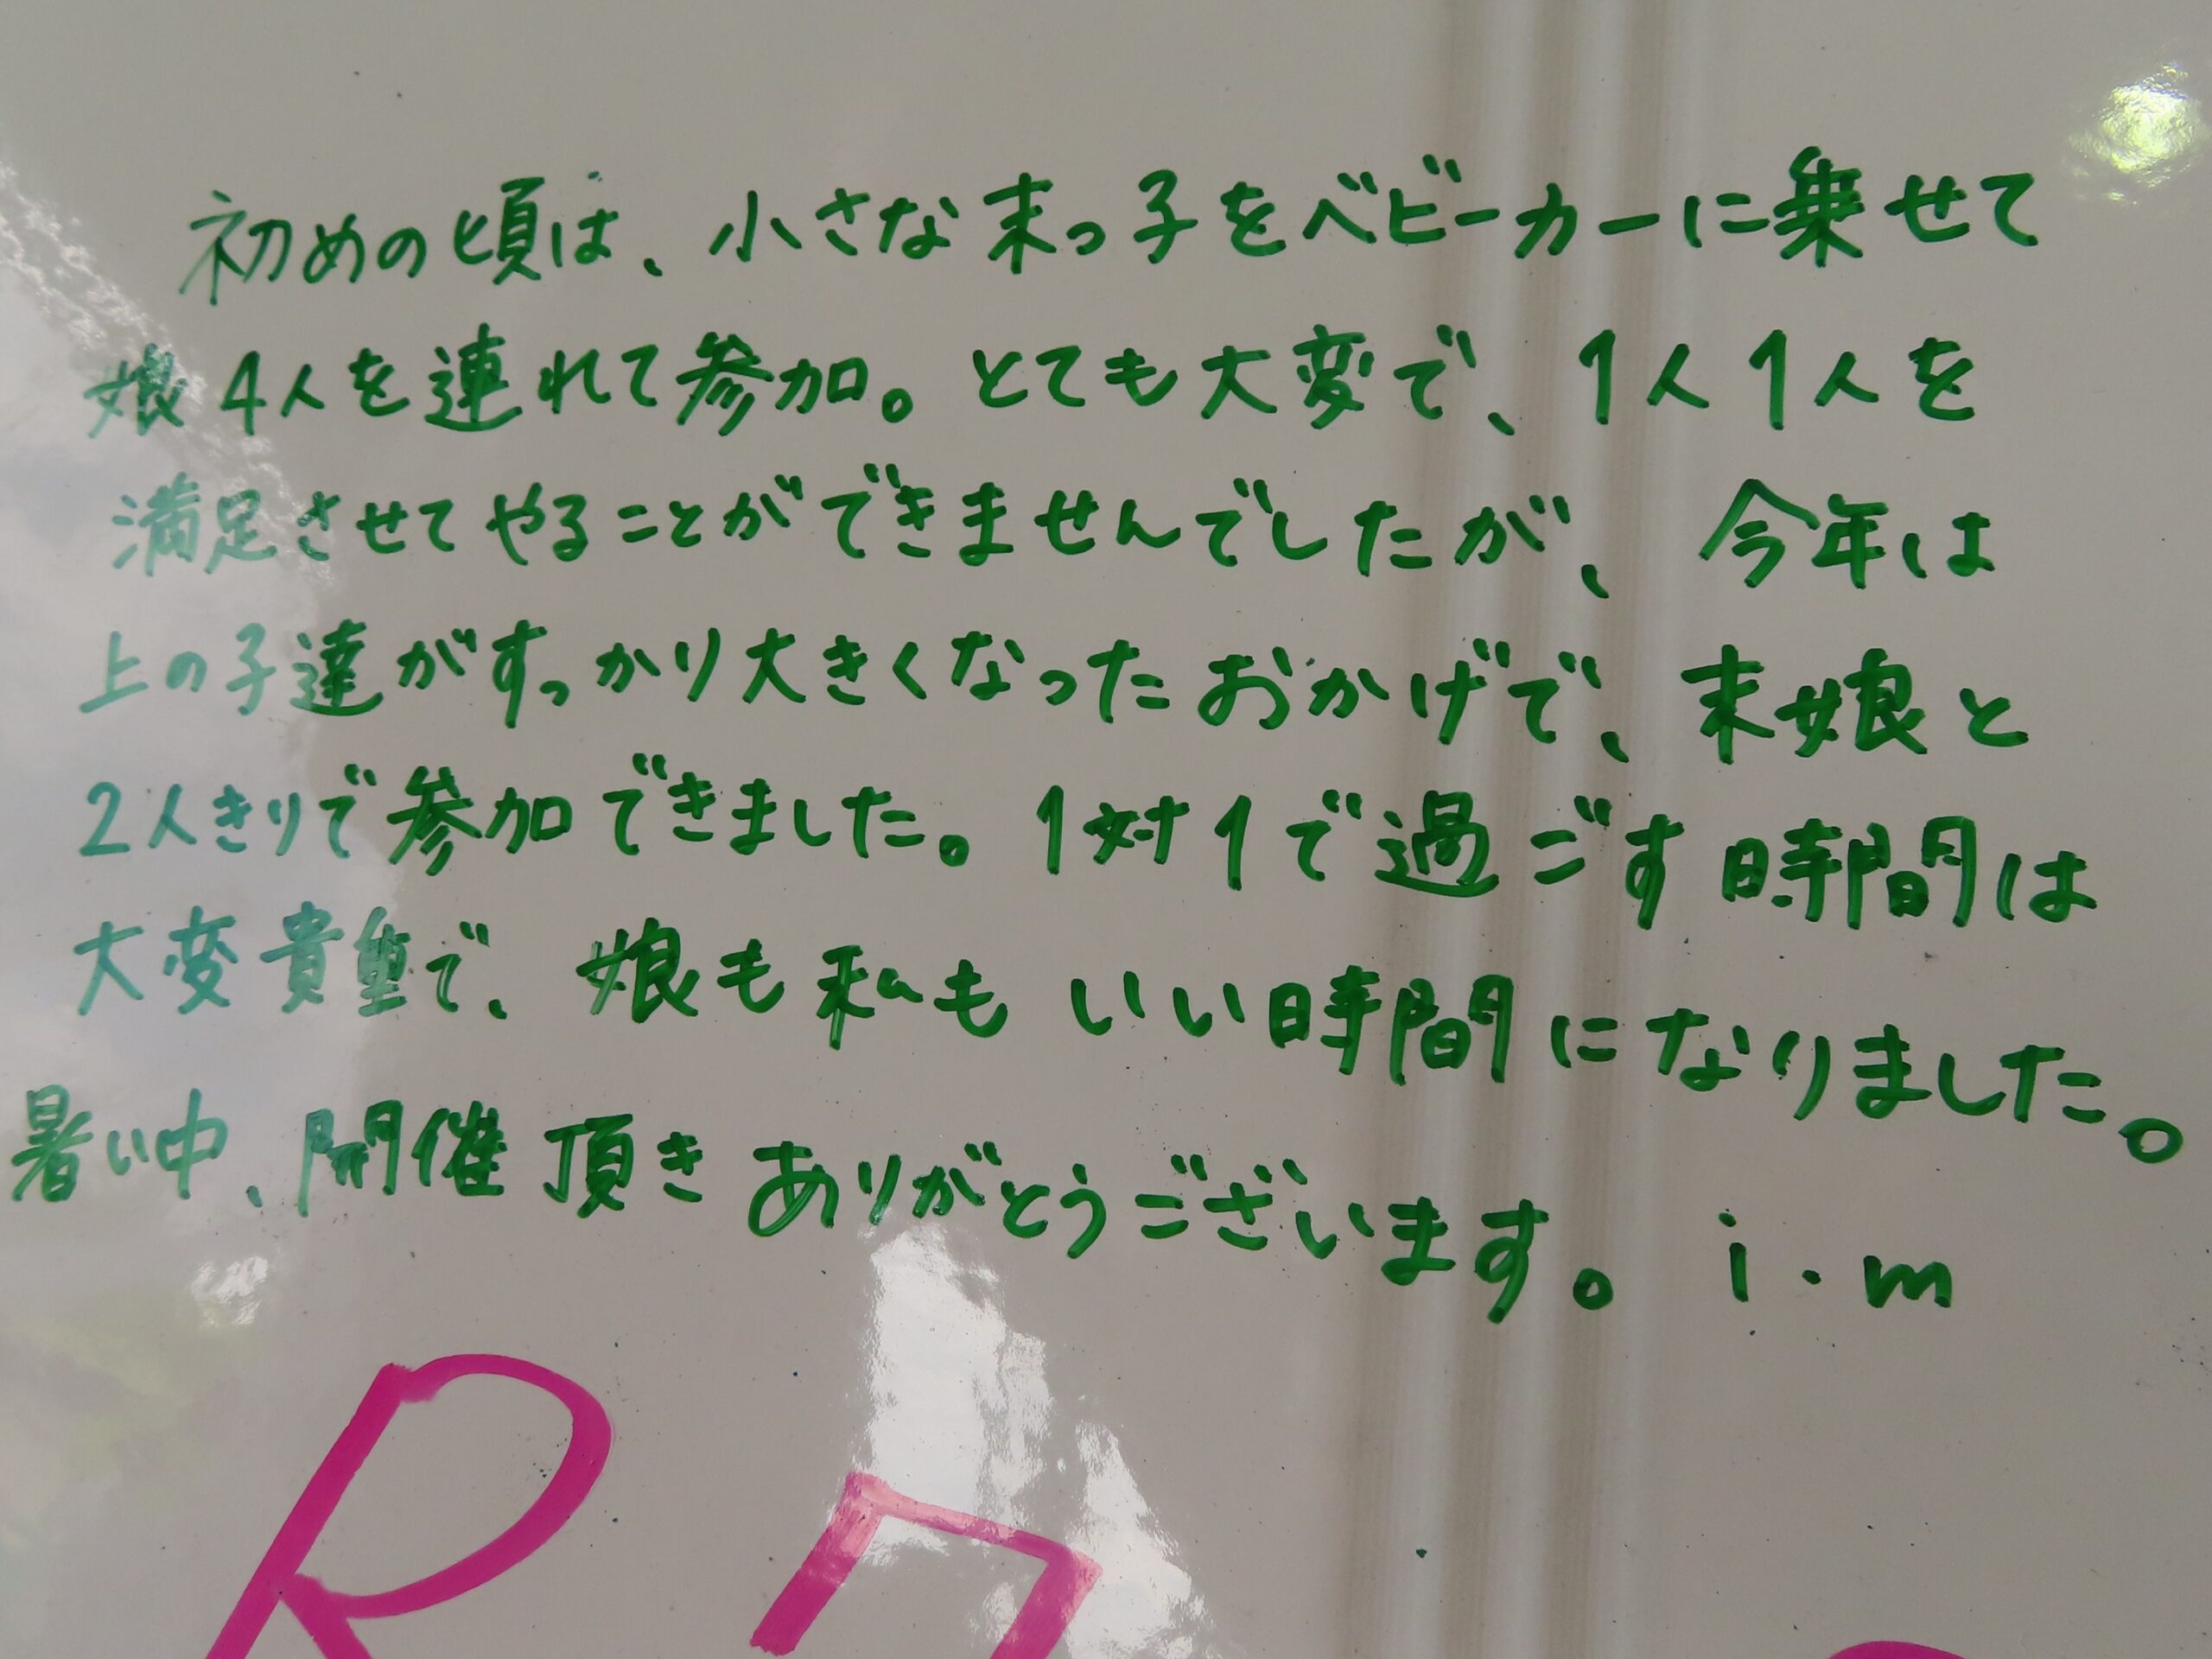 初めの頃は、小さな末っ子をベビーカーに乗せて
娘4人を連れて参加。とても大変で、1人1人を
満足させてやることができませんでしたが、今年は
上の子達がすっかり大きくなったおかげで、末娘と
2人きりで参加できました。1対1で過ごす時間は
大変貴重で、娘も私もいい時間になりました。
暑い中、開催頂きありがとうございます。 i.m
R